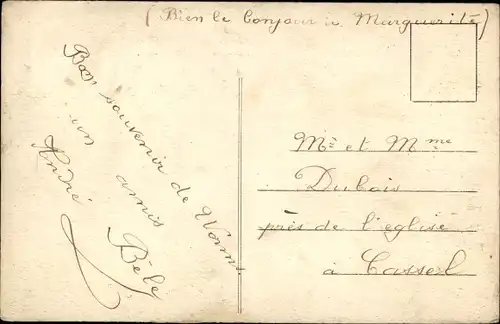 (Bien le bonjour à Marguerite)
Bon souvenir de Worms
un amis
André Bélé
Mr et Mme
Dubois
près de l'eglise
à Cassel